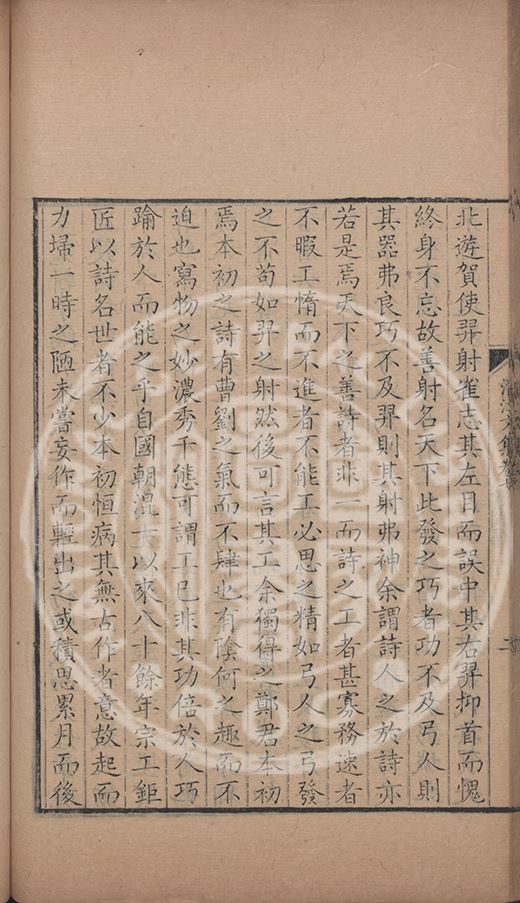 北遊賀使羿射雀志其左目而誤中其右羿抑首而愧
終身不忘故善射名天下此發之巧者功不及弓人則
其器弗良巧不及羿則其射弗神余謂詩人之於詩亦
若是焉天下之善詩者非一而詩之工者甚寡務速者
不暇工惰而不進者不能工必思之精如弓人之弓發
之不苟如羿之射然後可言其工余獨得之鄭君本初
焉本初之詩有曹劉之氣而不肆也有陰何之趣而不
迫也寫物之妙濃秀千態可謂工已非其功倍於人巧
踰於人而能之乎自國朝混一以來八十餘年宗工鉅
匠以詩名世者不少本初恒病其無古作者意故起而
力埽一時之陋未嘗妄作而輕出之或積思累月而後